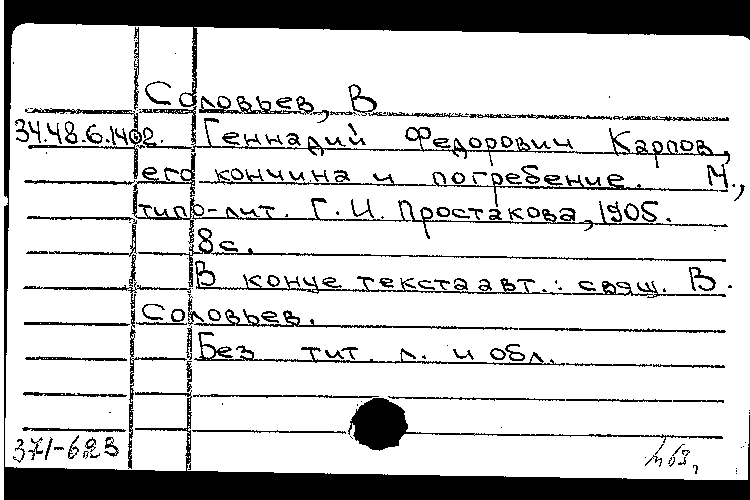 Соловьев, В
34.48.6.1402. Геннадий Федорович Карпов,
его кончина и погребение. М.,
типо-лит. Г. И. Простакова, 1905.
8с.
В конце текста авт.: свящ. В.
Соловьев.
Без тит. л. и обл.
371-62В